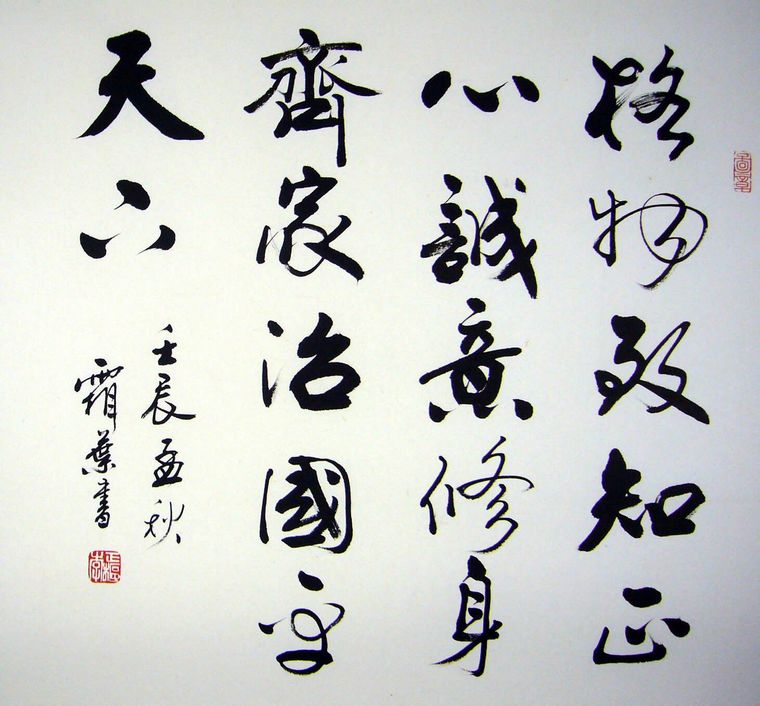 格物致知正
心誠意修身
齊家治國平
天下
壬辰孟秋
霜葉書